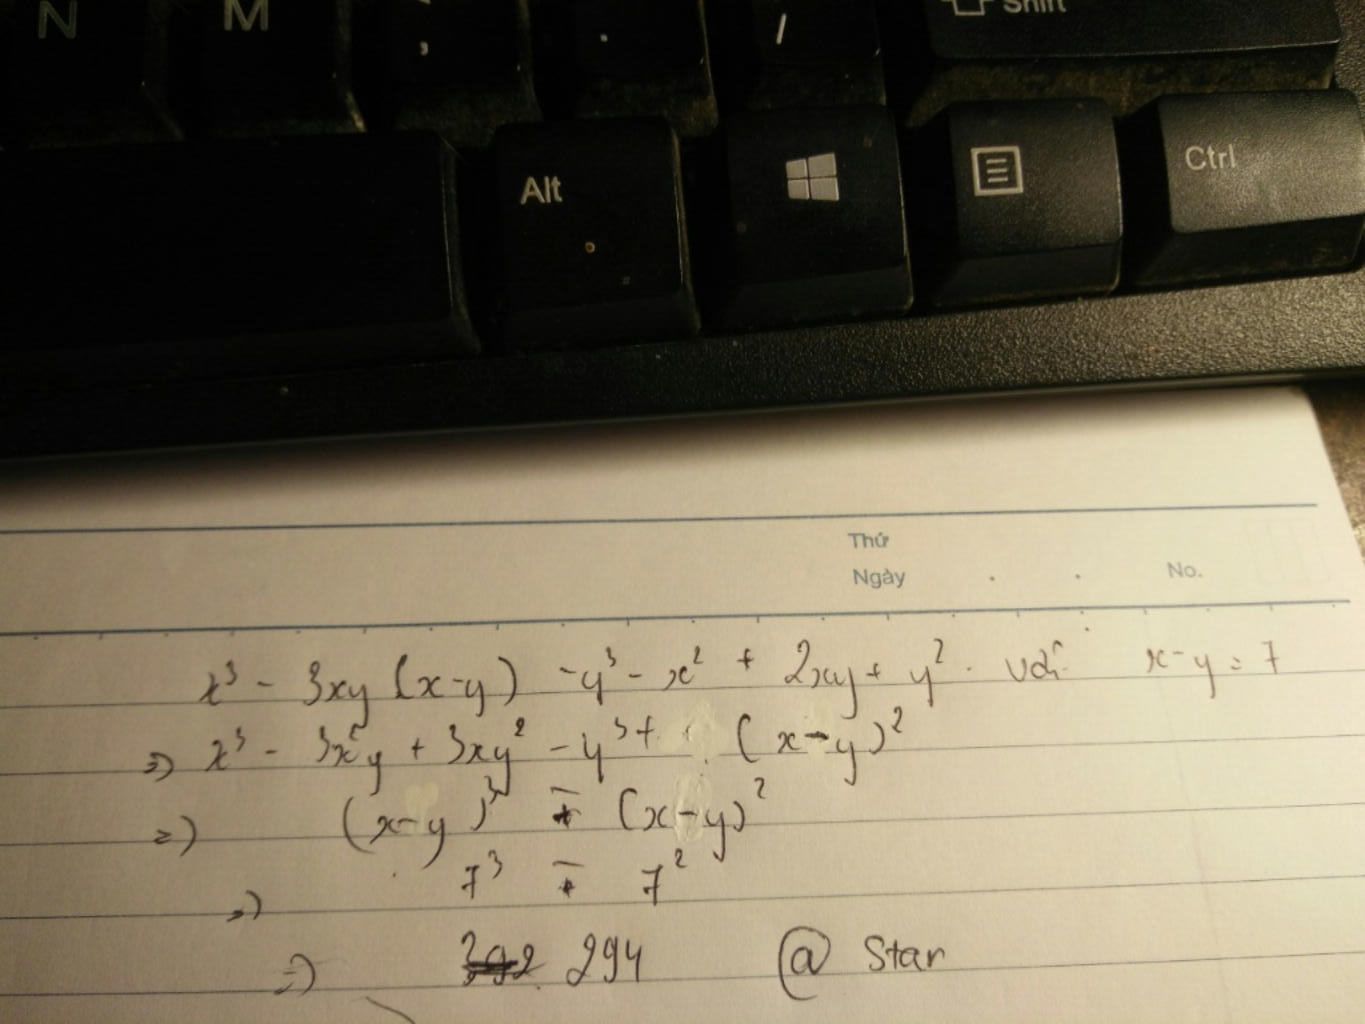 N M , . / Shift
Alt Ctrl
Thứ
Ngày . . No.
x³ - 3xy (x-y) -y³ - x² + 2xy + y² . với x-y = 7
=) x³ - 3x²y + 3xy² - y³ + (x-y)²
=) (x-y)³ - (x-y)²
=) 7³ - 7²
=) 392 294 @ Star